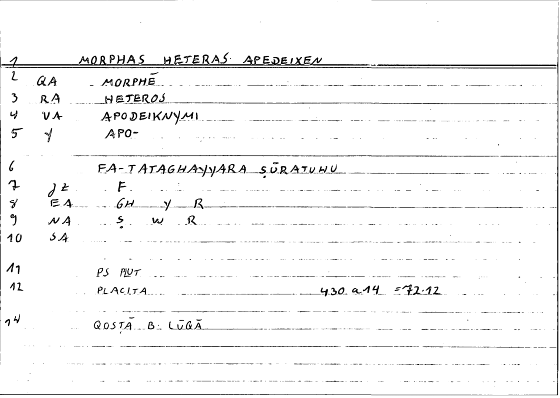 1 MORPHAS HETERAS APEDEIXEN
2 QA MORPHĒ
3 RA HETEROS
4 VA APODEIKNYMI
5 Y APO-
6 FA-TATAGHAYYARA ṢŪRATUHU
7 JZ F
8 EA GH Y R
9 NA Ṣ W R
10 SA
11 PS PLUT
12 PLACITA 430 a 14 =72.12
14 QOSTĀ B. LŪQĀ